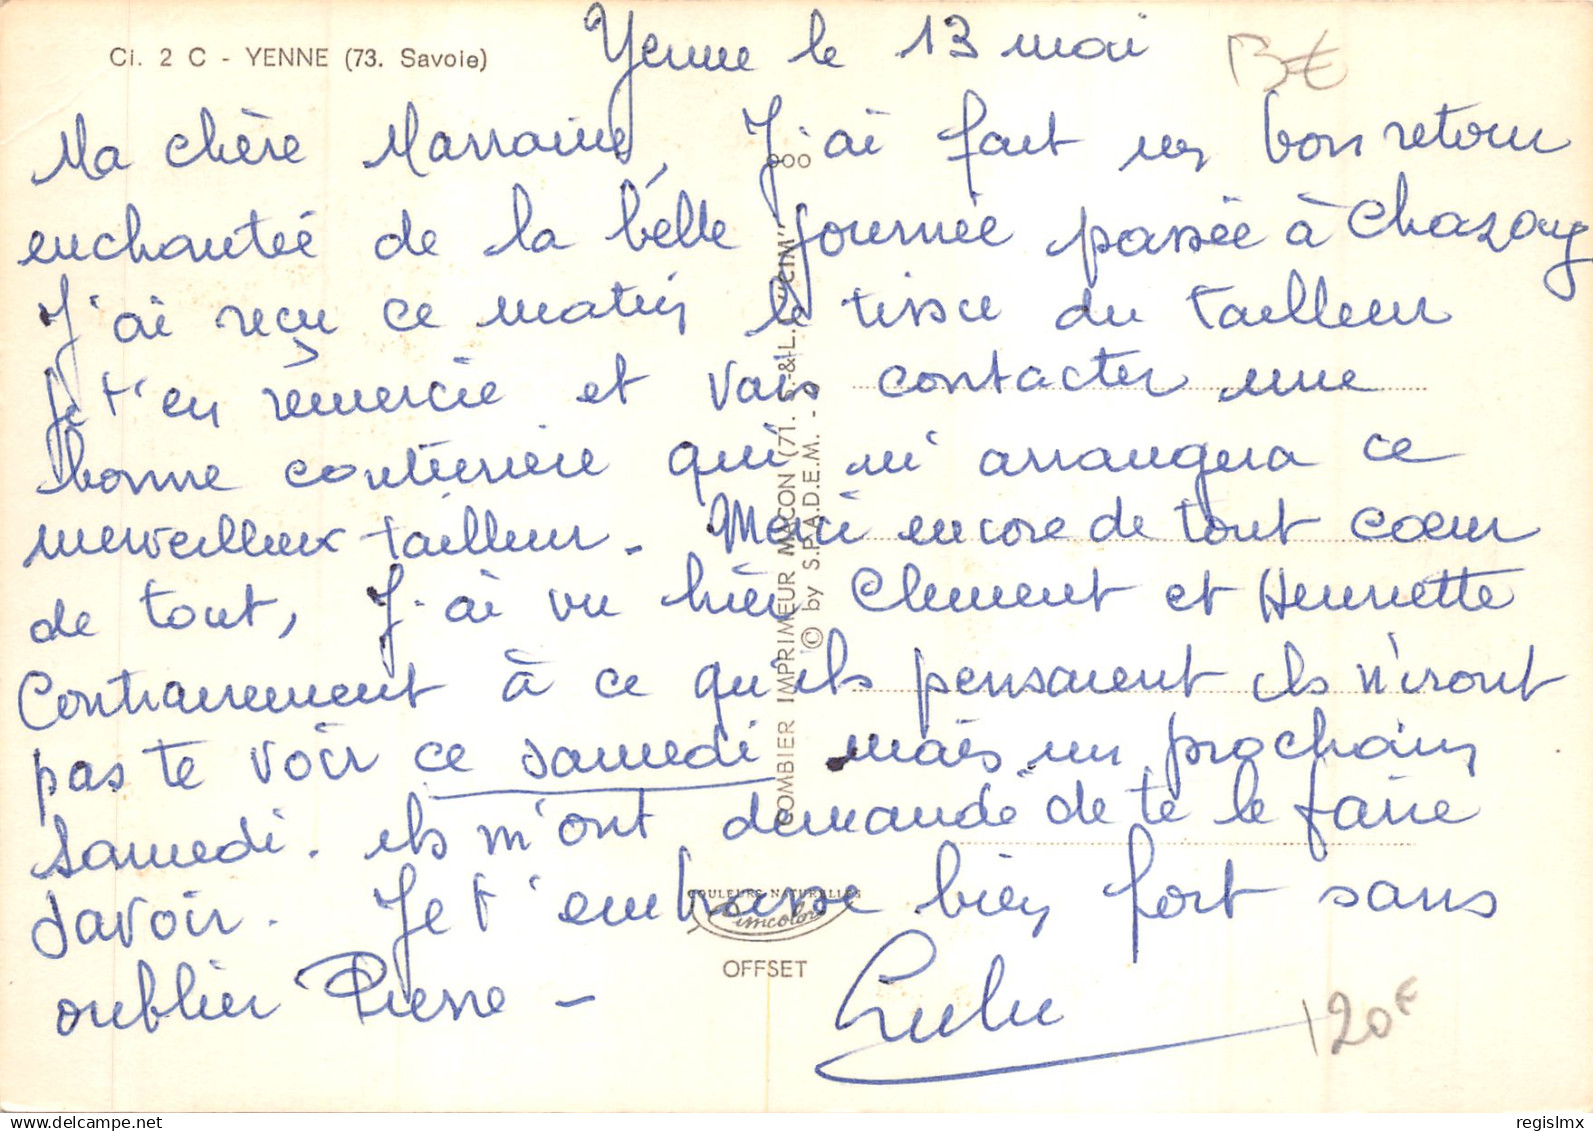 Ci. 2 C - YENNE (73. Savoie)
Yenne le 13 mai
B€
Ma chère Marraine, J'ai fait un bon retour
enchantée de la belle journée passée à Chazay
J'ai reçu ce matin le tissu du tailleur
Je t'en remercie et vais contacter une
bonne couturière qui m'arrangera ce
merveilleux tailleur. Merci encore de tout coeur
de tout, J'ai vu hier Clement et Henriette
Contrairement à ce qu'ils pensaient ils n'iront
pas te voir ce samedi mais un prochain
samedi. ils m'ont demandé de te le faire
savoir. Je t'embrasse bien fort sans
oublier Pierre -
Lulu
120F
COMBIER IMPRIMEUR MACON (71. S.-&-L.) "CIM"
© by S.P.A.D.E.M.
COULEURS NATURELLES
Cimcolor
OFFSET
delcampe.net
regislmx